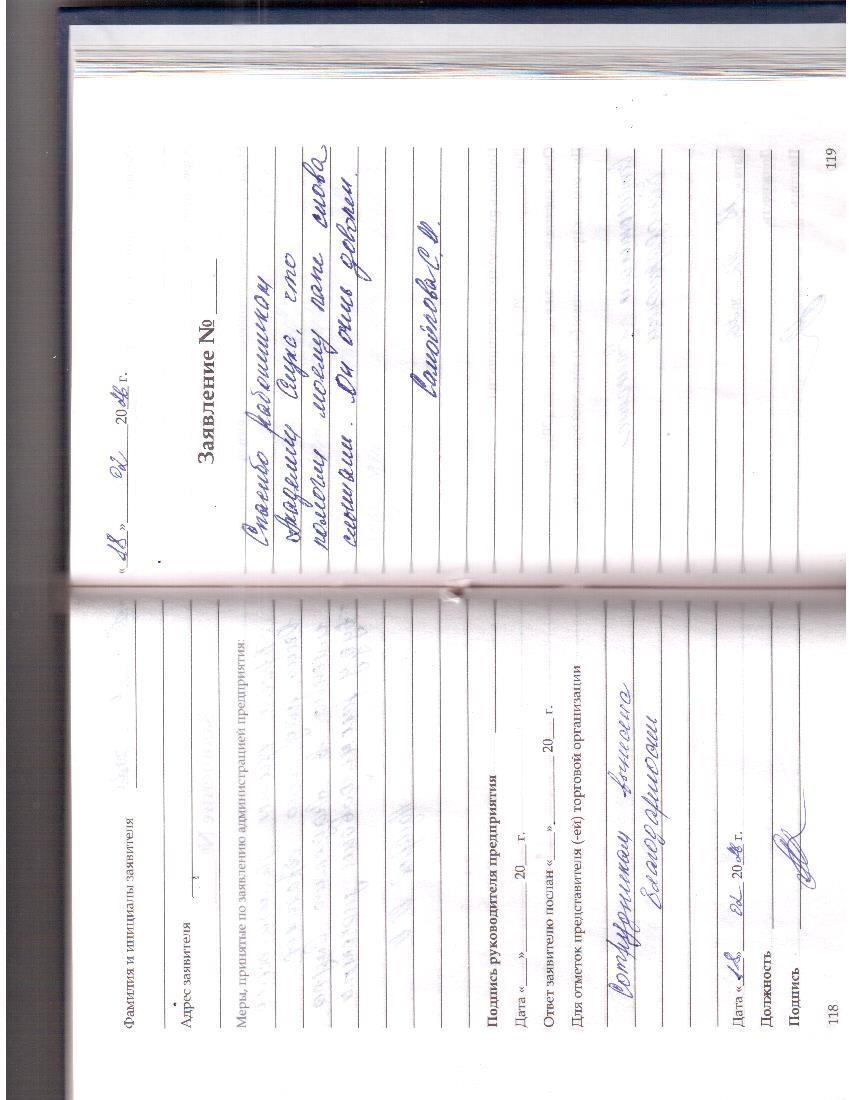 Фамилия и инициалы заявителя
Адрес заявителя
Меры, принятые по заявлению администрацией предприятия:
Подпись руководителя предприятия
Дата «___» ______ 20___ г.
Ответ заявителю послан «___» ______ 20___ г.
Для отметок представителя (-ей) торговой организации
Сотрудникам вынесена
благодарность
Дата «18» 02 20 г.
Должность
Подпись
118
«18» 02 20 г.
Заявление № ____
Спасибо работникам
Академии Слуха, что
помогли моему папе снова
слышать. Он очень доволен.
Самойлова С.
119